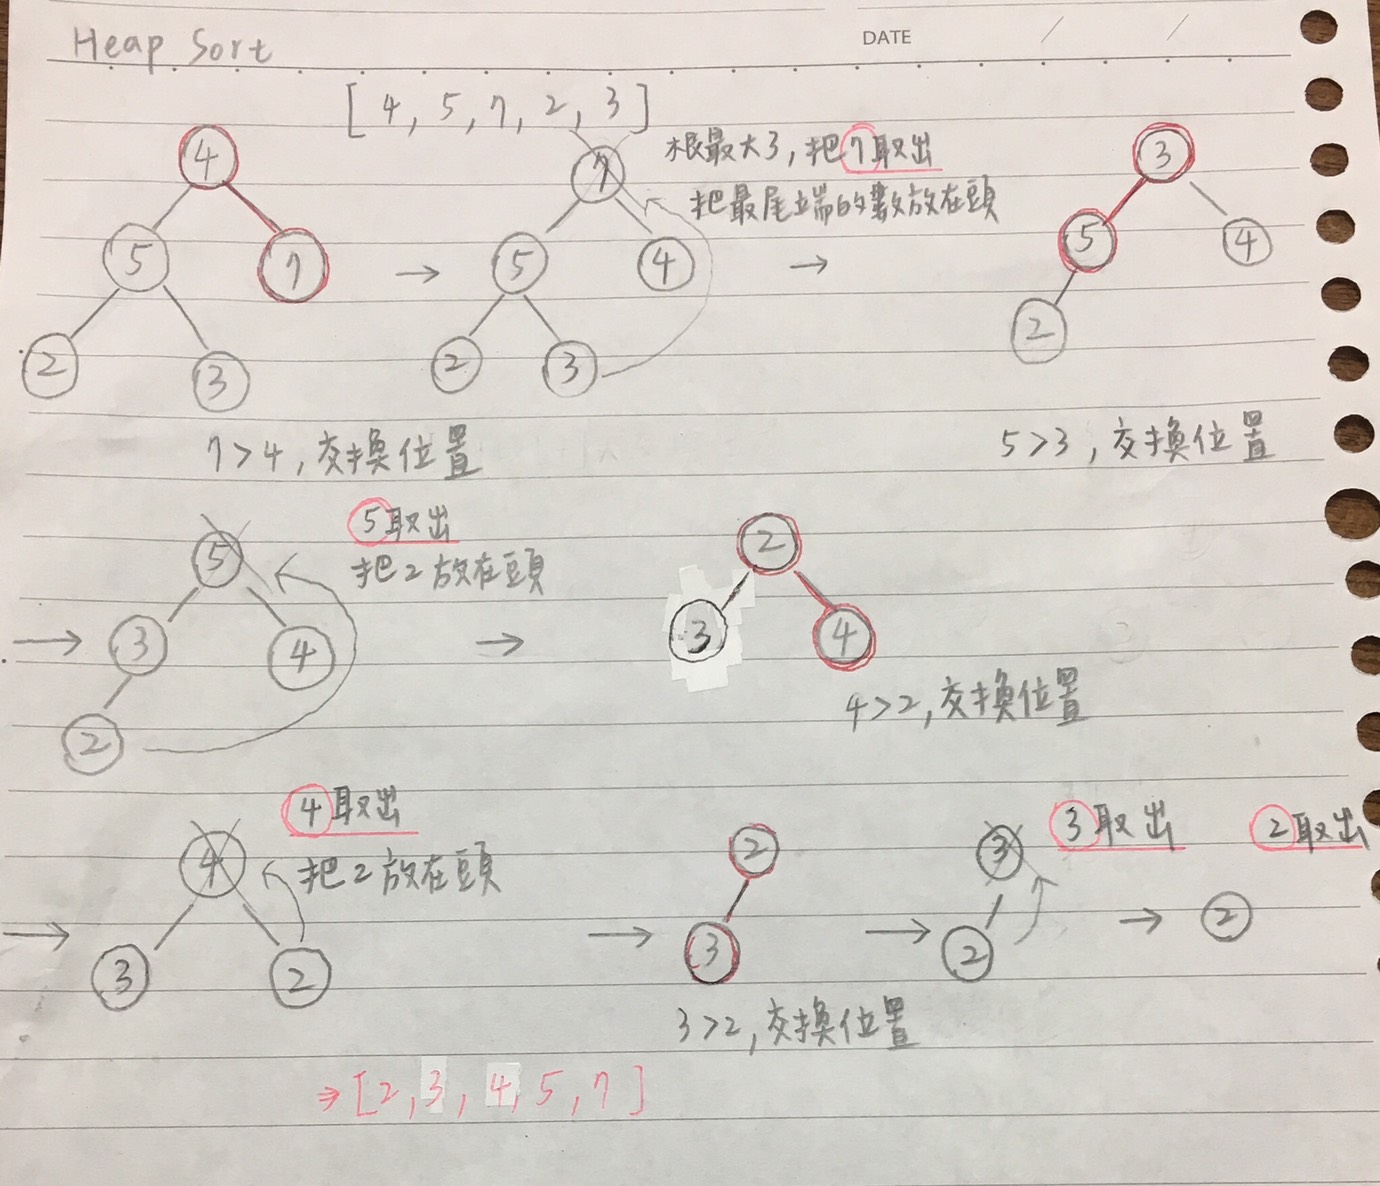 Heap Sort
DATE / /
[ 4, 5, 7, 2, 3 ]
4
5 7
2 3
7>4, 交換位置
→
7
5 4
2 3
根最大了, 把7取出
把最尾端的數放在頭
→
3
5 4
2
5>3, 交換位置
→
5
3 4
2
5取出
把2放在頭
→
2
3 4
4>2, 交換位置
→
4
3 2
4取出
把2放在頭
→
2
3
3>2, 交換位置
→
3
2
3取出
→
2取出
2
⇒ [2, 3, 4, 5, 7]